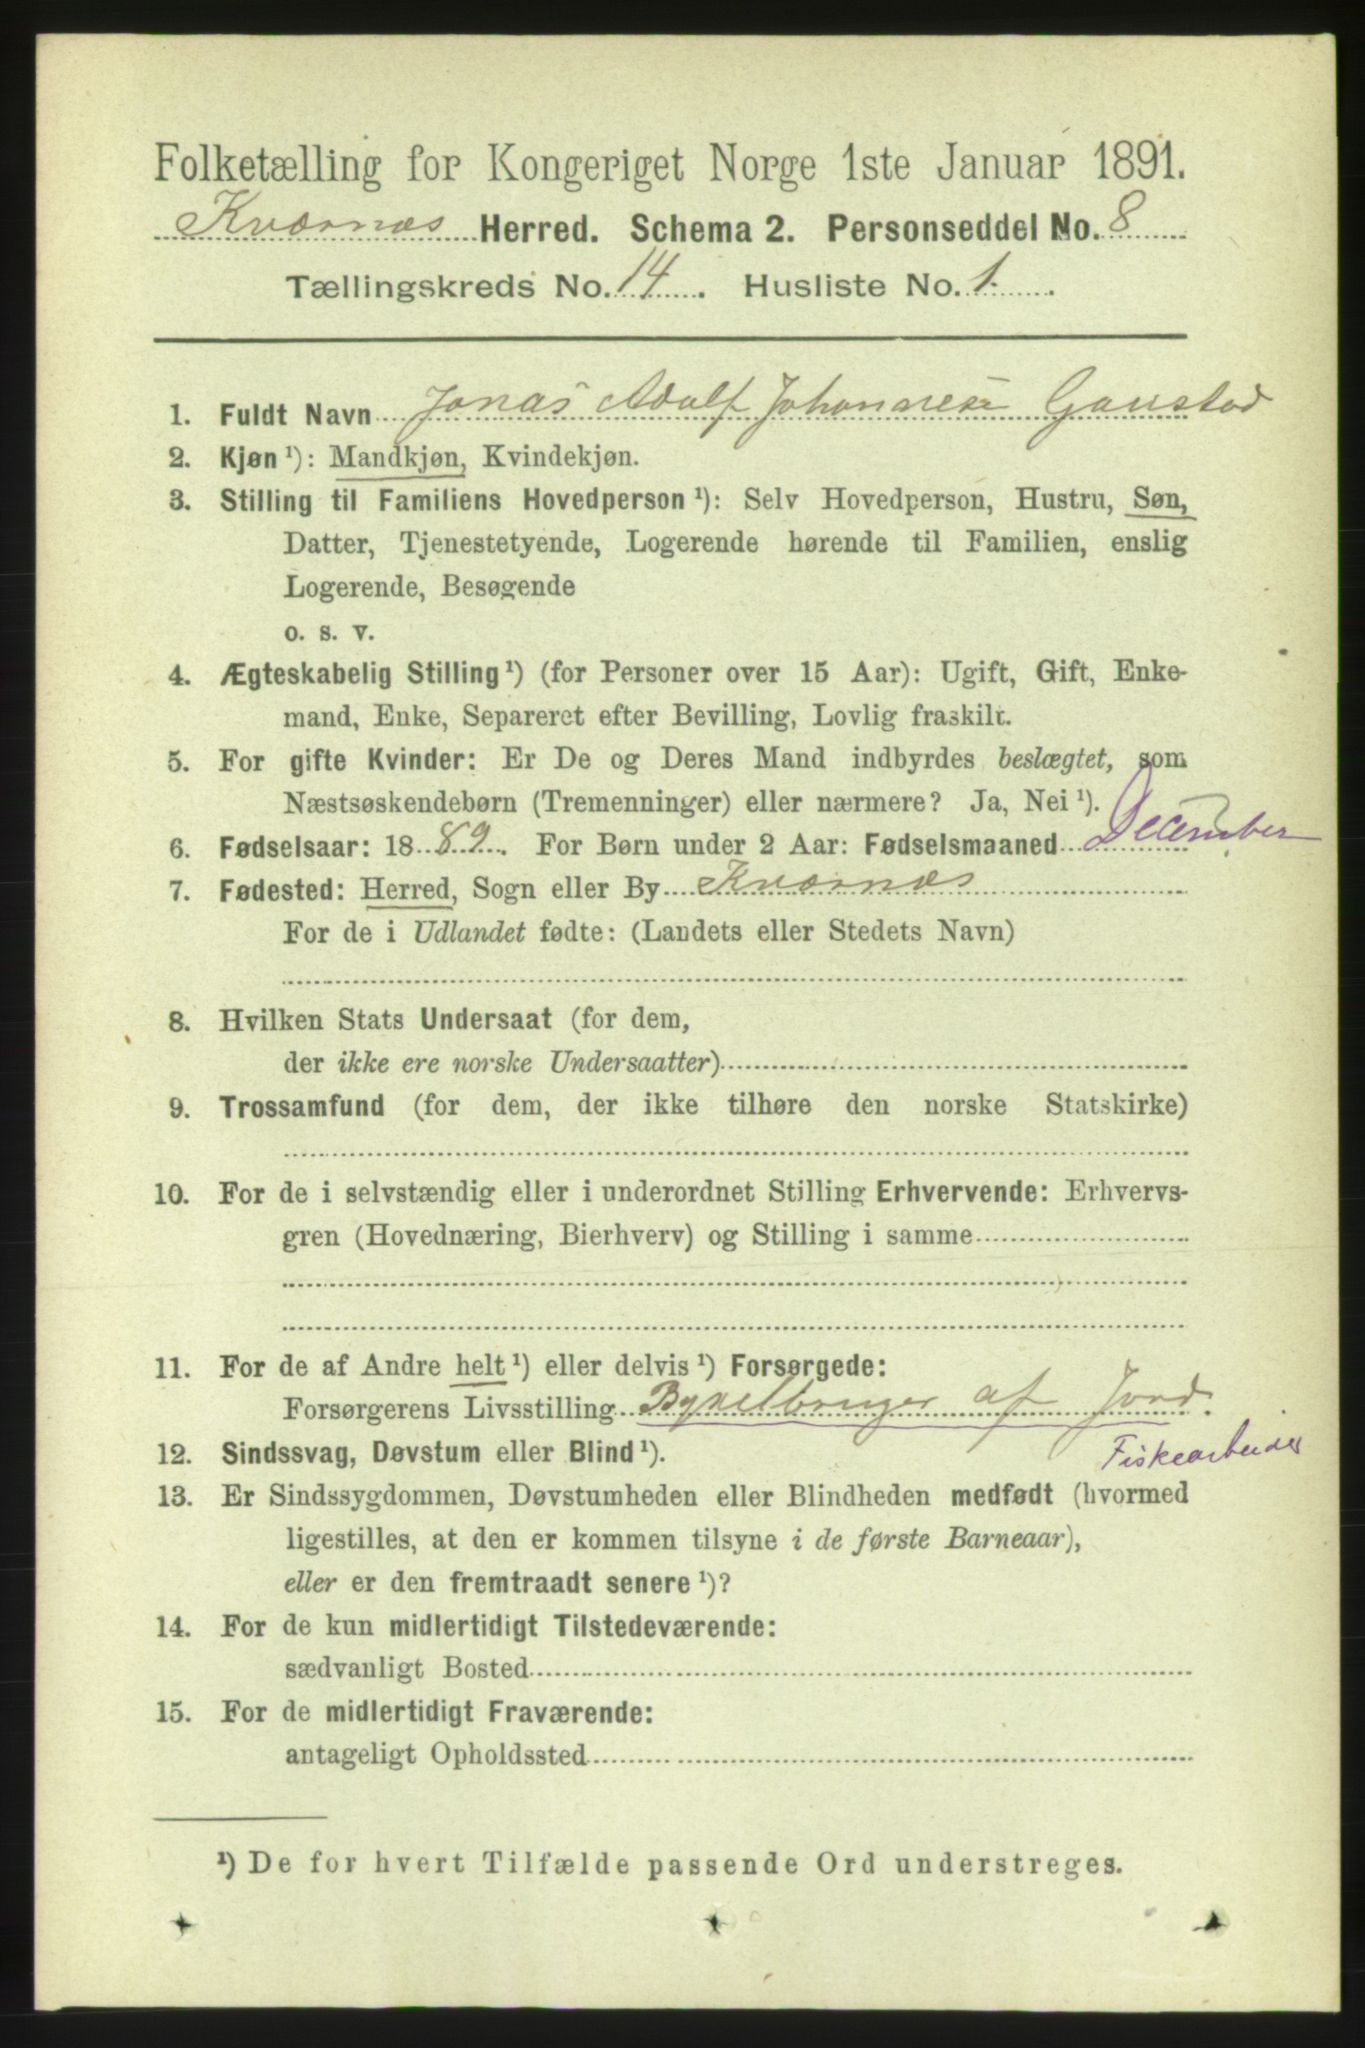 Folketælling for Kongeriget Norge 1ste Januar 1891.
Kværnæs Herred. Schema 2. Personseddel No. 8
Tællingskreds No. 14. Husliste No. 1.
1. Fuldt Navn Jonas Adolf Johannesen Gaustad
2. Kjøn ¹): Mandkjøn, Kvindekjøn.
3. Stilling til Familiens Hovedperson ¹): Selv Hovedperson, Hustru, Søn,
Datter, Tjenestetyende, Logerende hørende til Familien, enslig
Logerende, Besøgende
o. s. v.
4. Ægteskabelig Stilling ¹) (for Personer over 15 Aar): Ugift, Gift, Enke-
mand, Enke, Separeret efter Bevilling, Lovlig fraskilt.
5. For gifte Kvinder: Er De og Deres Mand indbyrdes beslægtet, som
Næstsøskendebørn (Tremenninger) eller nærmere? Ja, Nei ¹).
6. Fødselsaar: 1889. For Børn under 2 Aar: Fødselsmaaned December
7. Fødested: Herred, Sogn eller By Kværnæs
For de i Udlandet fødte: (Landets eller Stedets Navn)
8. Hvilken Stats Undersaat (for dem,
der ikke ere norske Undersaatter)
9. Trossamfund (for dem, der ikke tilhøre den norske Statskirke)
10. For de i selvstændig eller i underordnet Stilling Erhvervende: Erhvervs-
gren (Hovednæring, Bierhverv) og Stilling i samme
11. For de af Andre helt ¹) eller delvis ¹) Forsørgede:
Forsørgerens Livsstilling Byxelbruger af Jord.
Fiskearbeider
12. Sindssvag, Døvstum eller Blind ¹).
13. Er Sindssygdommen, Døvstumheden eller Blindheden medfødt (hvormed
ligestilles, at den er kommen tilsyne i de første Barneaar),
eller er den fremtraadt senere ¹)?
14. For de kun midlertidigt Tilstedeværende:
sædvanligt Bosted
15. For de midlertidigt Fraværende:
antageligt Opholdssted
¹) De for hvert Tilfælde passende Ord understreges.